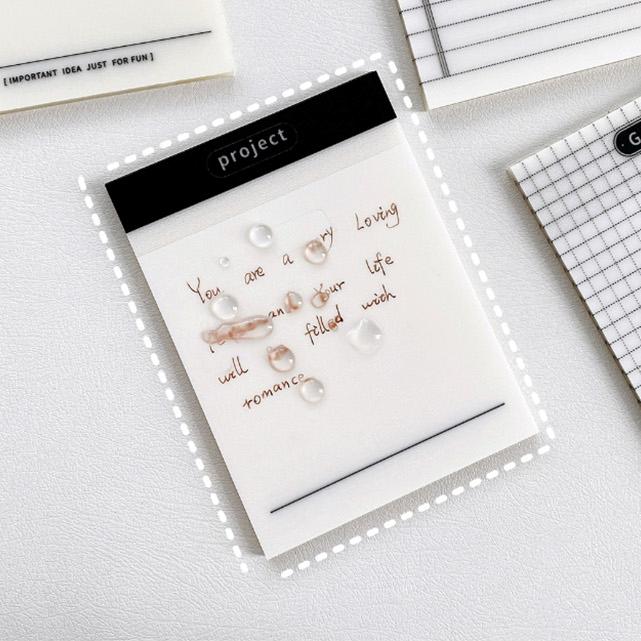 [ IMPORTANT IDEA JUST FOR FUN ]
project
You are a Loving
and your life
will filled with
romance